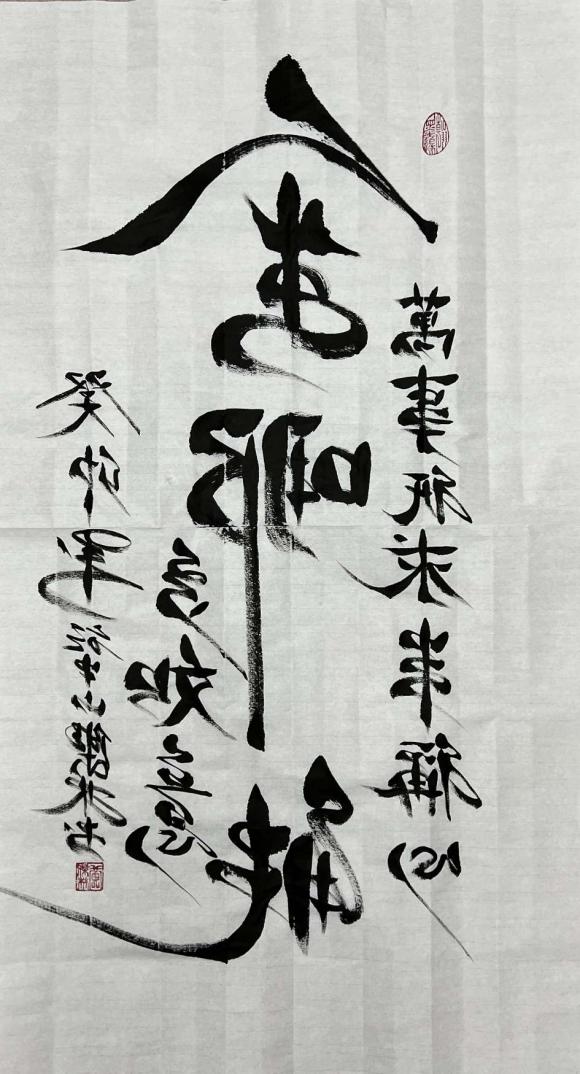 人生哪能
多如意
萬事祇求半稱心
癸卯年